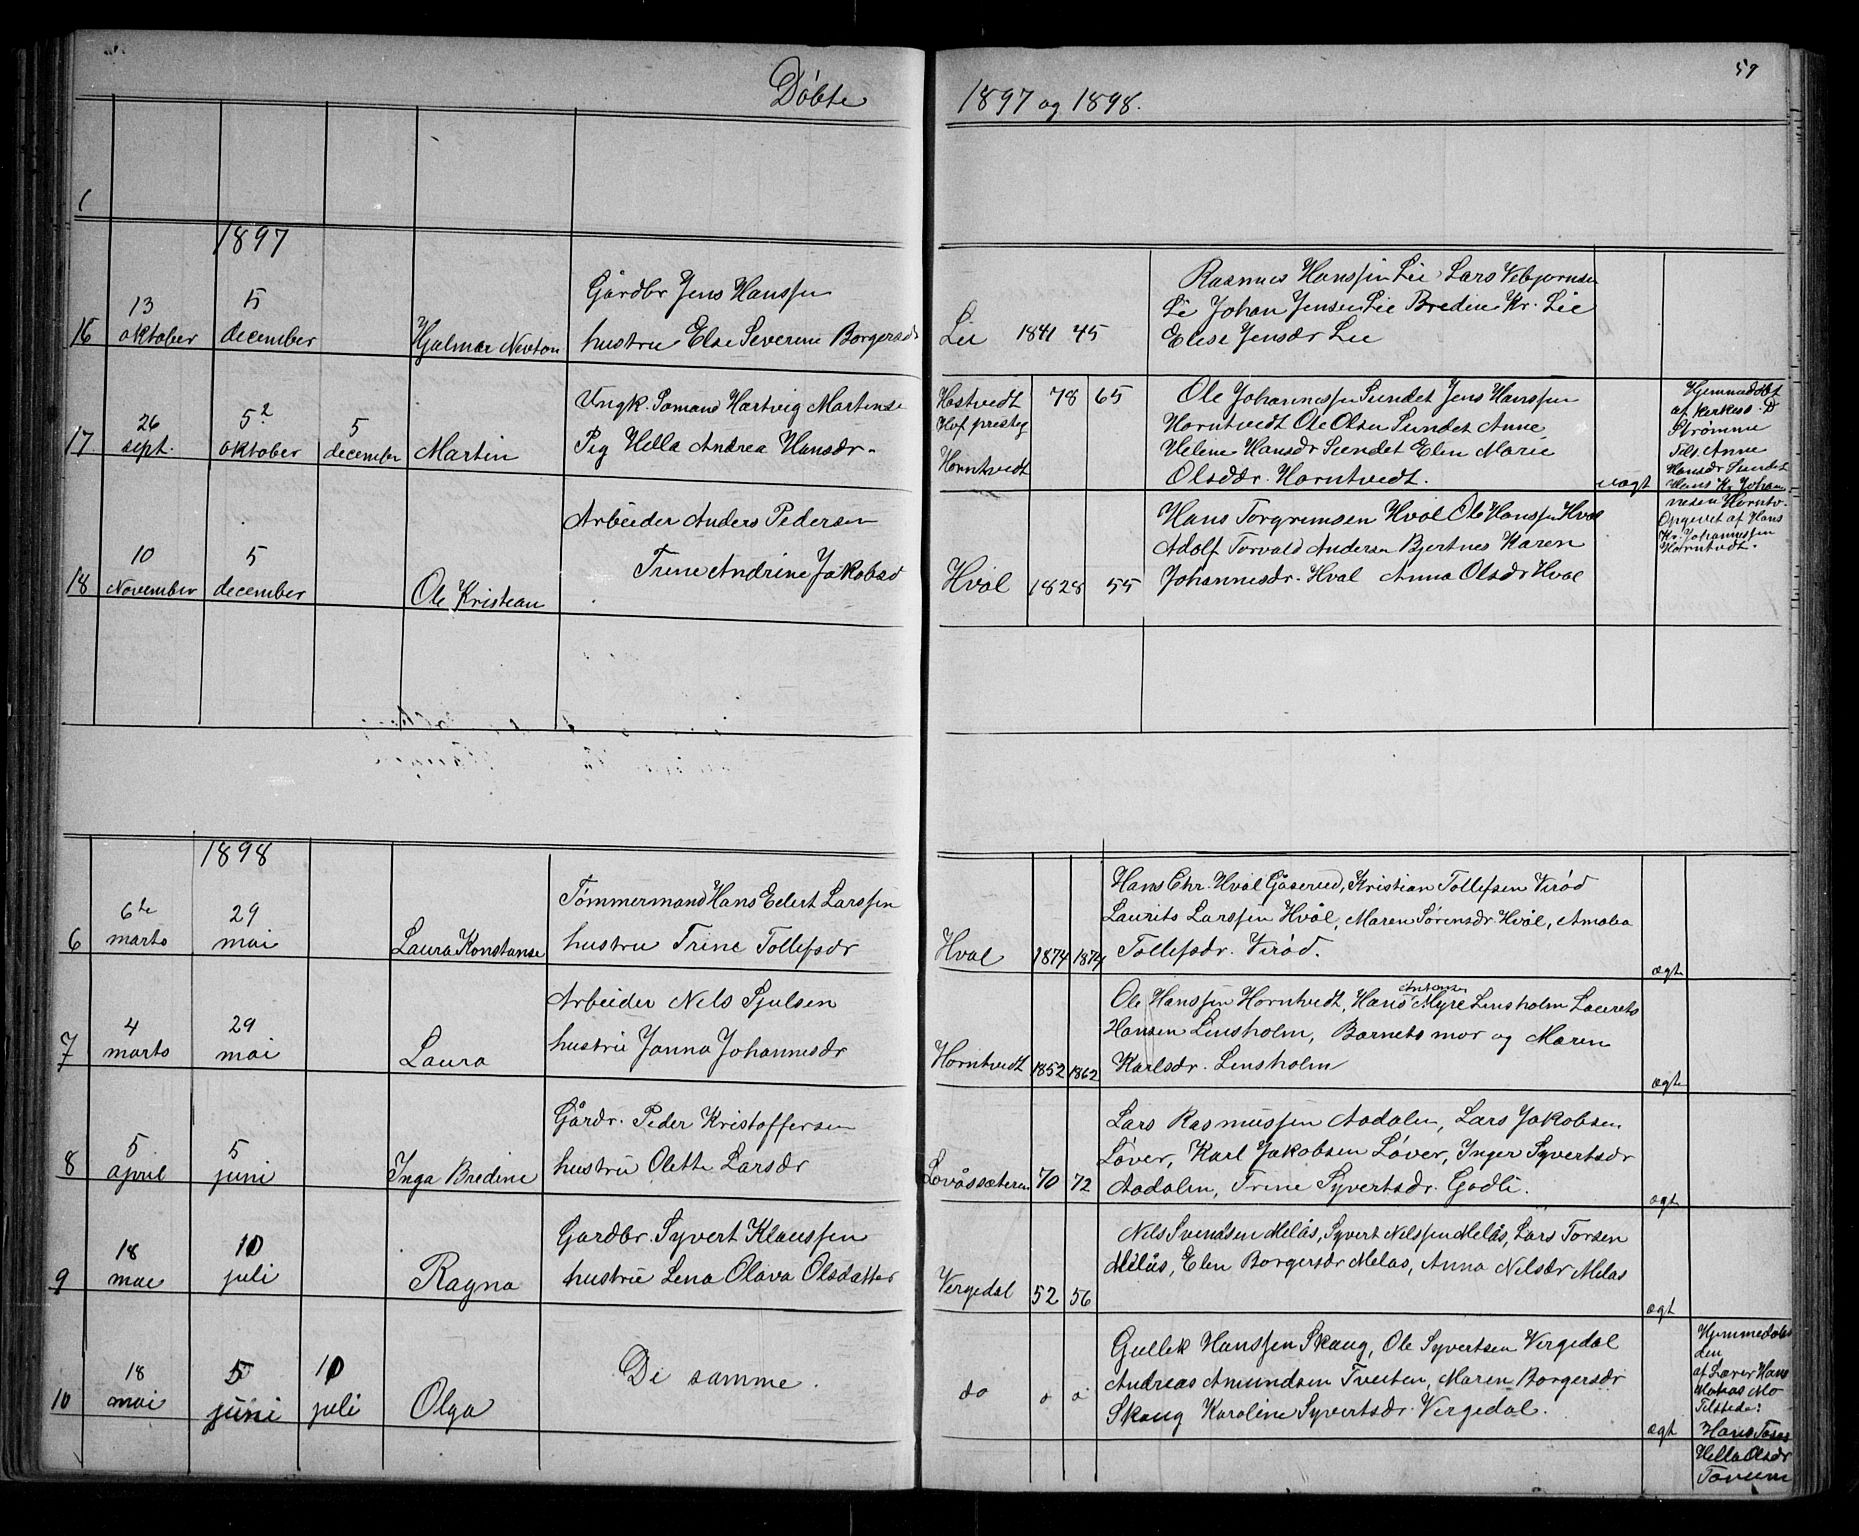 59
Døbte 1897 og 1898.
1897
16 13 oktober 5 december Hjalmar Newton
Gårdbr Jens Hanssen
hustru Else Severine Borgersdr
Lie 1841 45
Rasmus Hanssen Lie Lars Vebjørnsen
Li Johan Jensen Lie Bredine Kr. Lie
Elise Jensdr Lie
17 26 sept. 5 oktober 5 december Martin
Ungk. Sømand Hartvig Martinse
Pig Hella Andrea Hansdr.
Hostvedt 78 65
Hof presteg
Horntvedt
Ole Johannessen Sundet Jens Hanssen
Horntvedt Ole Olsen Sundet Anne
Helene Hansdr Sundet Elen Marie
Olsddr. Horntvedt.
uægt
Hjemmedøbt
af Kirkess. D
Strømme
Tils. Anne
Hansdr Sundet
Hans K. Johan
nesen Horntv.
Opgivet af Hans
Kr. Johannessen
Horntvedt.
18 10 November 5 december Ole Kristian
Arbeider Anders Pedersen
Trine Andrine Jakobsd
Hval 1828 55
Hans Torgrimsen Hval Ole Hanssen Hval
Adolf Torvald Andersen Bjertnes Karen
Johannesdr. Hval Anna Olsdr Hval
1898
6 6te marts 29 mai Laura Konstanse
Tømmermand Hans Edert Larssen
hustru Trine Tollefsdr
Hval 1874 1874
Hans Chr. Hval Gåserud, Kristian Tollefsen Virød
Laurits Larssen Hvål, Maren Sørensdr. Hvål, Amalia
Tollefsdr. Virød.
ægt
7 4 marts 29 mai Laura
Arbeider Nils Sjulsen
hustru Janna Johannesdr
Horntvedt 1852 1862
Ole Hanssen Horntvedt, Hans Antonsen Myre Linsholm Laurits
Hansen Linsholm, Barnets mor og Maren
Karlsdr. Linsholm
ægt
8 5 april 5 juni Inga Bredine
Gårdr. Peder Kristoffersen
hustru Olette Larsdr
Løvåssæteren 70 72
Lars Rasmussen Aadalen, Lars Jakobsen
Løver, Karl Jakobsen Løver, Inger Syvertsdr
Aadalen, Trine Syvertsdr. Godli.
ægt
9 18 mai 10 juli Ragna
Gardbr. Syvert Klaussen
hustru Lena Olava Olsdatter
Vergedal 52 56
Nils Svendsen Melås, Syvert Nilssen Melås, Lars Torsen
Melås, Elen Borgersdr Melas, Anna Nilsdr Melas
ægt
10 18 mai 5 juni 10 juli Olga
De samme.
do o o
Gullik Hanssen Skaug, Ole Syvertsen Vergedal
Andreas Amundsen Tveiten, Maren Borgersdr
Skaug Karoline Syvertsdr. Vergedal.
ægt
Hjemmedøbt
den
af Lærer Hans
Matias Mo
Tilstede:
Hans
Hella Olsdr